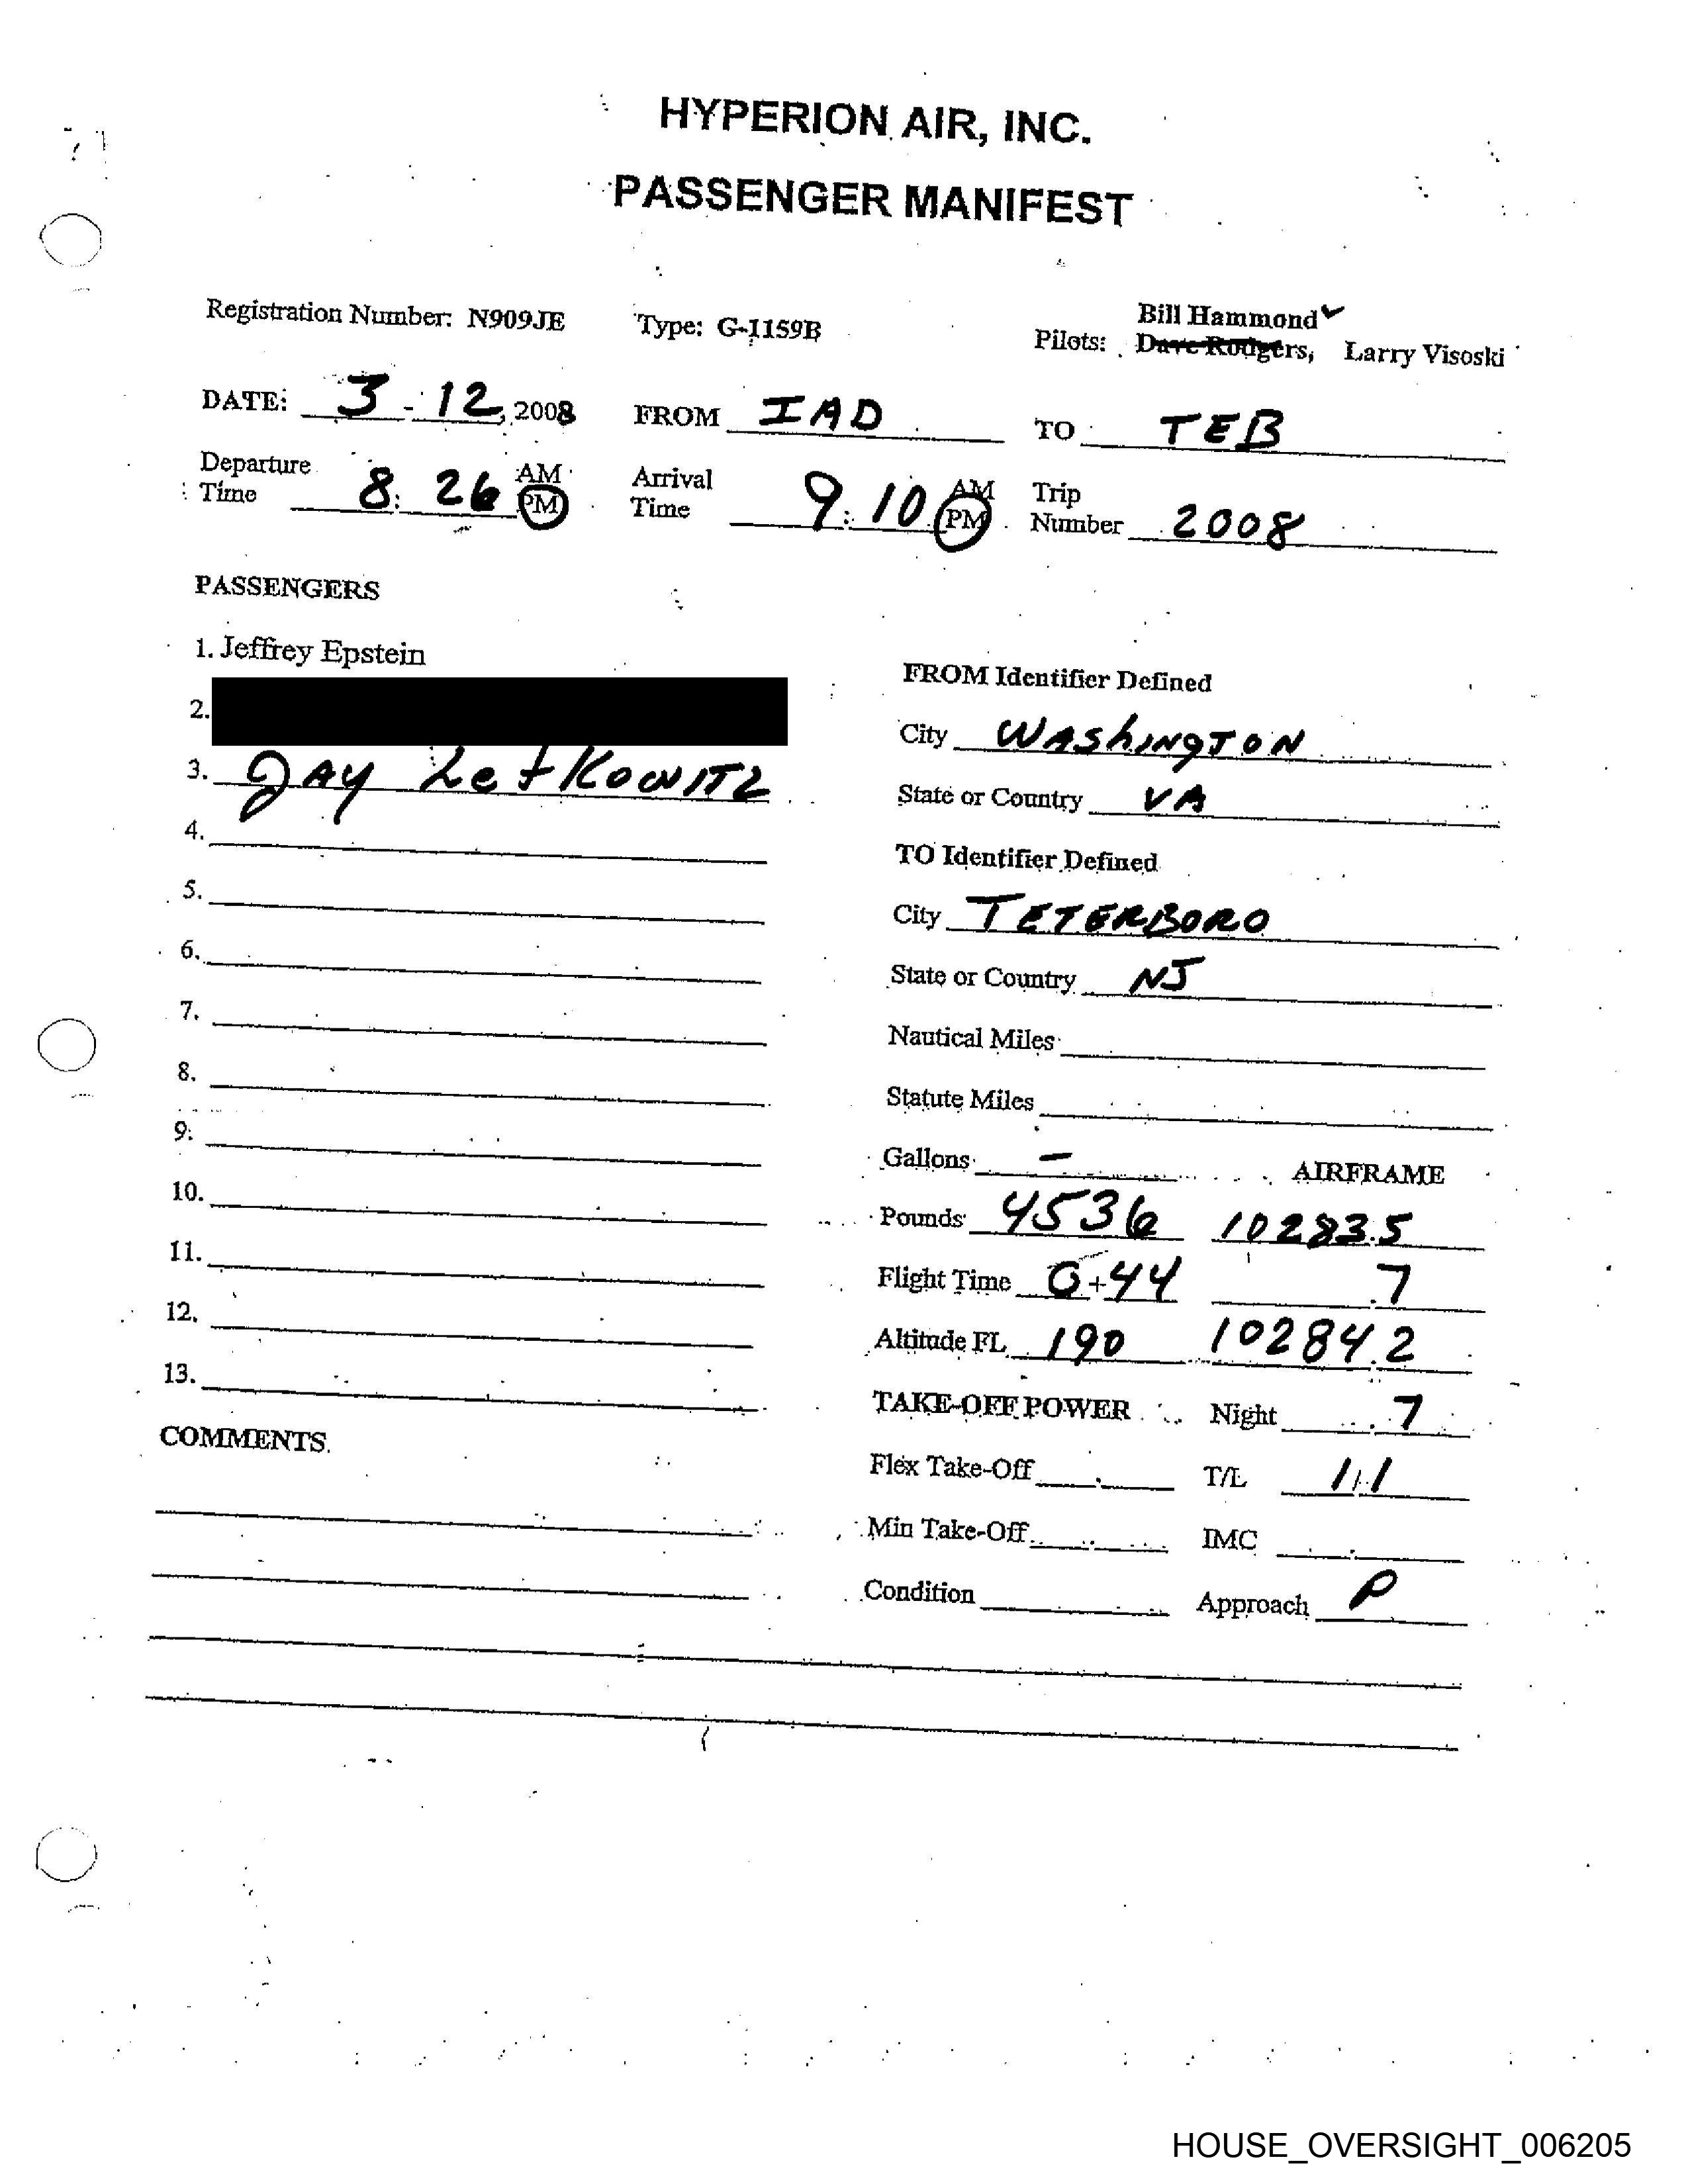 HYPERION AIR, INC.
PASSENGER MANIFEST
Registration Number: N909JE Type: G-1159B Pilots: Bill Hammond ✓ Dave Rodgers, Larry Visoski
DATE: 3 - 12, 2008 FROM IAD TO TEB
Departure Time 8:26 AM PM Arrival Time 9:10 AM PM Trip Number 2008
PASSENGERS
1. Jeffrey Epstein
2.
3. JAY LefKowITZ
4.
5.
6.
7.
8.
9.
10.
11.
12.
13.
COMMENTS
FROM Identifier Defined
City WAShINgTON
State or Country VA
TO Identifier Defined
City TETERBORO
State or Country NJ
Nautical Miles
Statute Miles
Gallons - AIRFRAME
Pounds 4536 10283.5
Flight Time 0+44 .7
Altitude FL 190 10284.2
TAKE-OFF POWER Night .7
Flex Take-Off T/L 1/1
Min Take-Off IMC
Condition Approach P
HOUSE_OVERSIGHT_006205